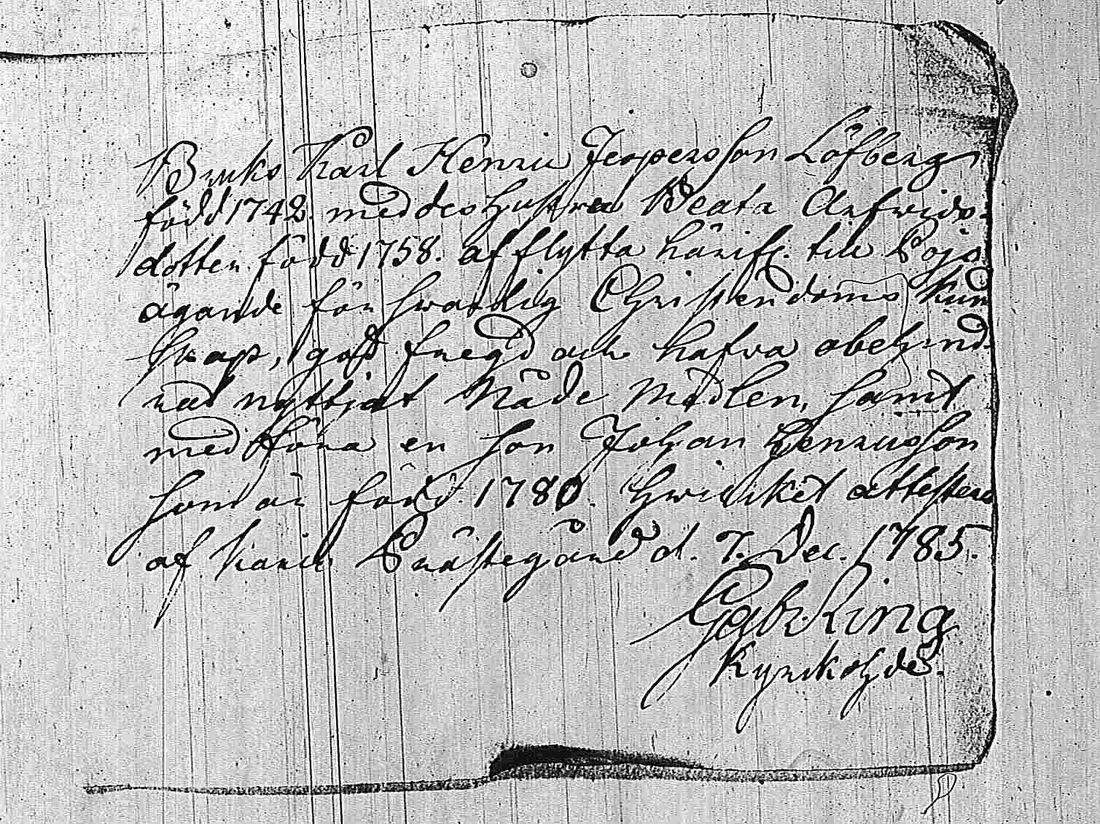 Bruks Karl Henric Jespersson Löfberg
född 1742. med des hustru Beata Arfwids-
dotter född 1758. afflytta härifr. till Pojo
ägande församlig Christendoms Kun
skap, godt fregd och hafva obehind-
rat nyttjat Nåde Medlen, samt
medföra en Son Johan Henricsson
som är född 1780. hwilcket attestera
af Karis Prästegård d. 7. Dec. 1785.
Gabr. Ring
Kyrkohde.